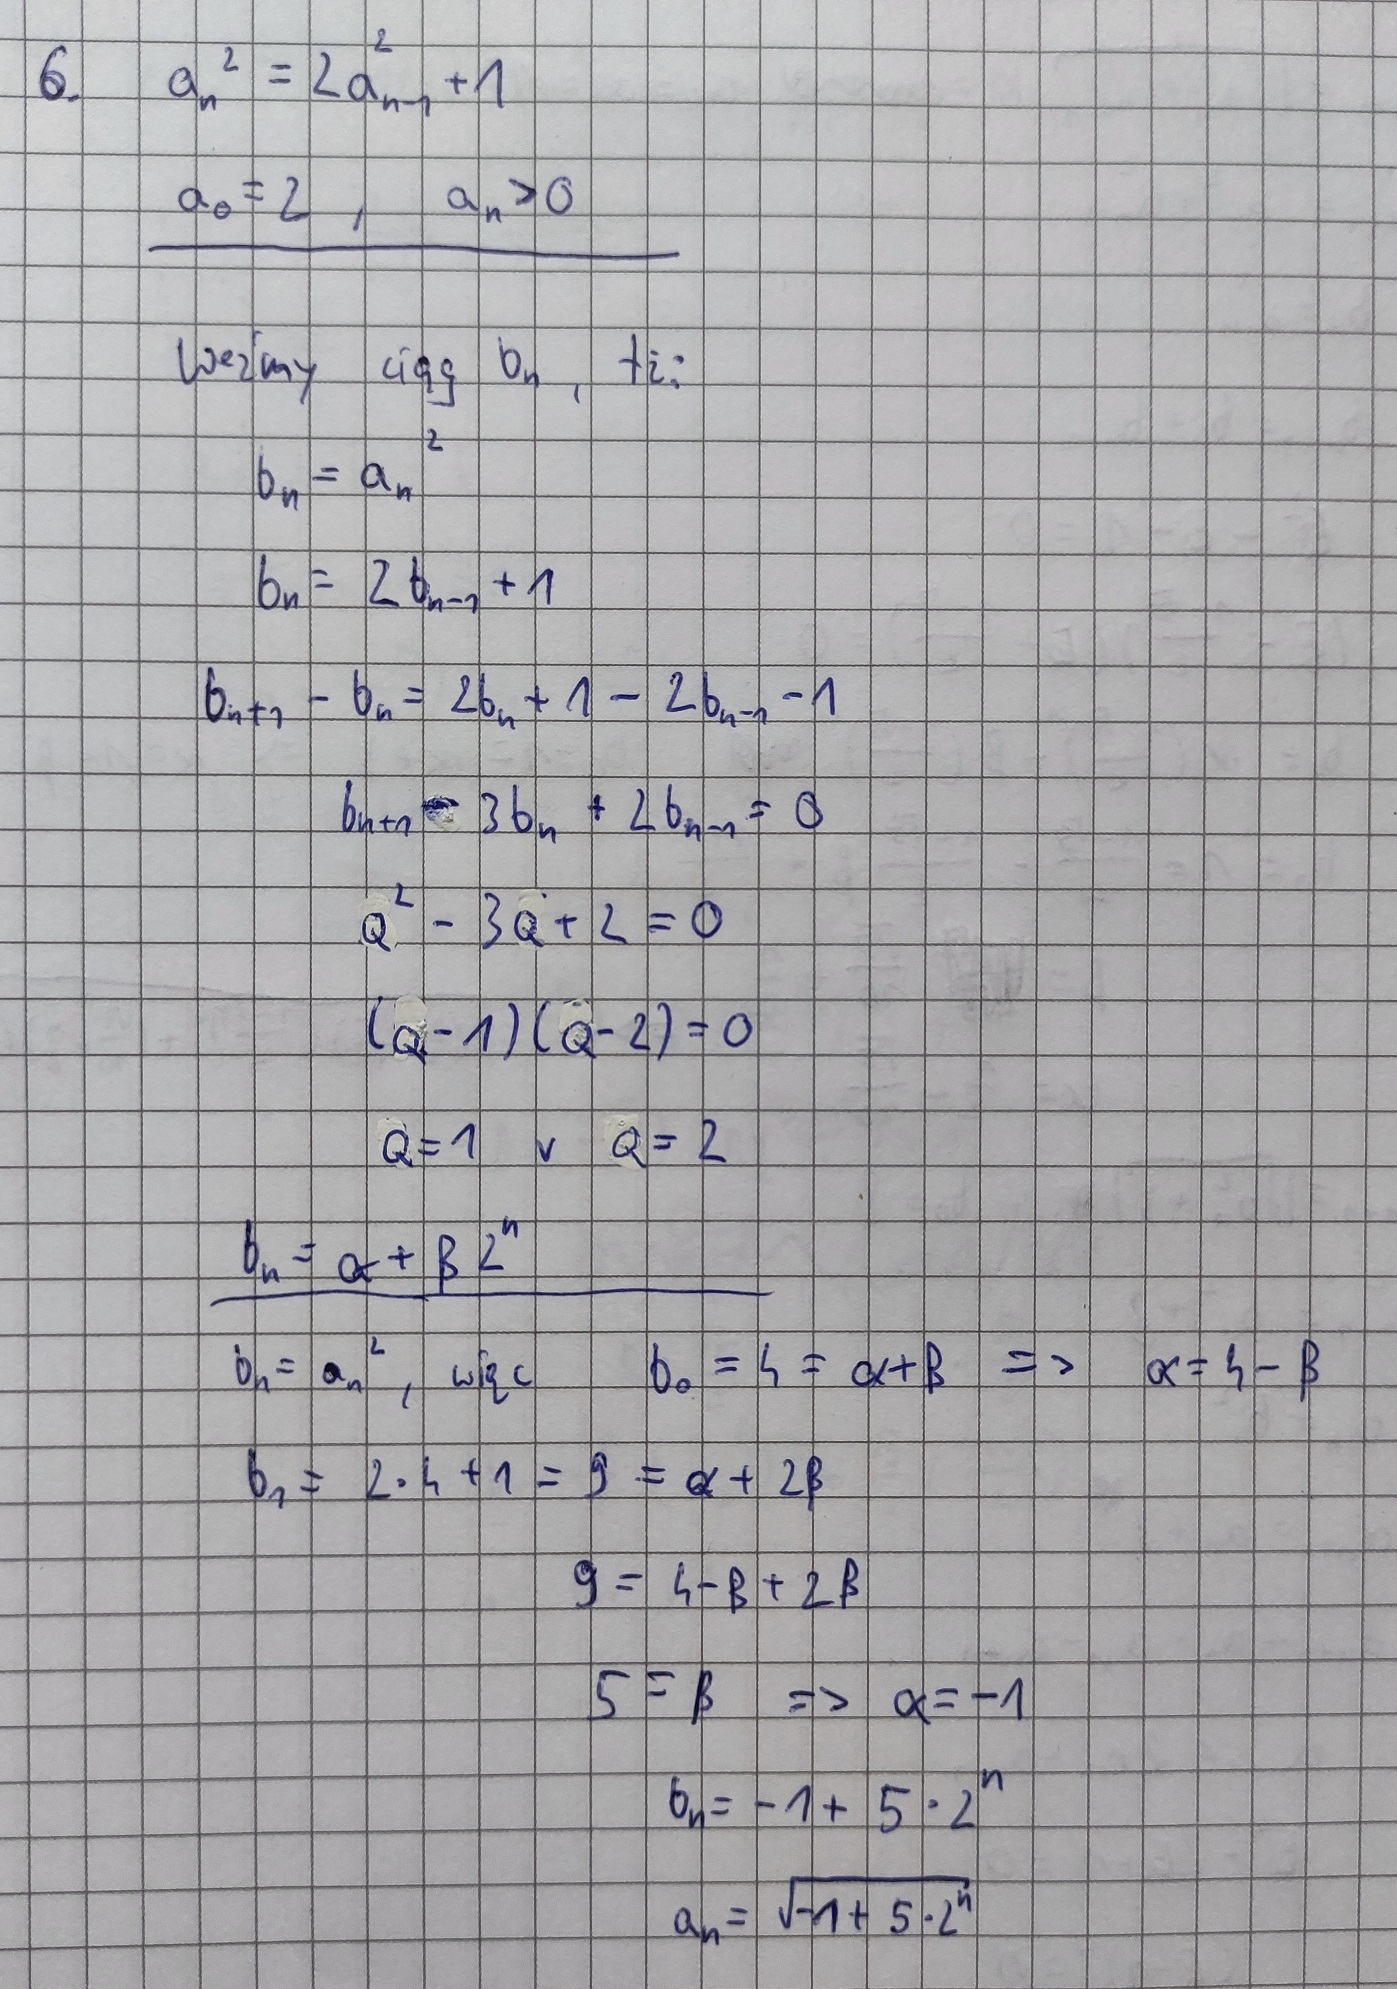 6. aₙ² = 2aₙ₋₁² + 1
a₀ = 2 , aₙ > 0
Weźmy ciąg bₙ , tż:
bₙ = aₙ²
bₙ = 2bₙ₋₁ + 1
bₙ₊₁ - bₙ = 2bₙ + 1 - 2bₙ₋₁ - 1
bₙ₊₁ - 3bₙ + 2bₙ₋₁ = 0
Q² - 3Q + 2 = 0
(Q - 1)(Q - 2) = 0
Q = 1 ∨ Q = 2
bₙ = α + β 2ⁿ
bₙ = aₙ² , więc b₀ = 4 = α + β => α = 4 - β
b₁ = 2·4 + 1 = 9 = α + 2β
9 = 4 - β + 2β
5 = β => α = -1
bₙ = -1 + 5·2ⁿ
aₙ = √(-1 + 5·2ⁿ)